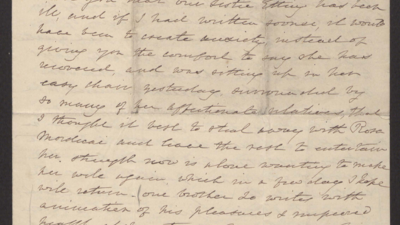 you our Sister Etting has been
ill, and if I had written sooner, it would
have been to create anxiety instead of
giving you the comfort to say she has
recovered, and was sitting up in her
easy chair yesterday, surrounded by
so many of her affectionate relatives, that
I thought it best to steal away with Rosa
Mordecai and leave the rest to entertain
her, strength now is alone wanting to make
her well again which in a few days I hope
will return. One brother writes with
animation of his pleasures & improved